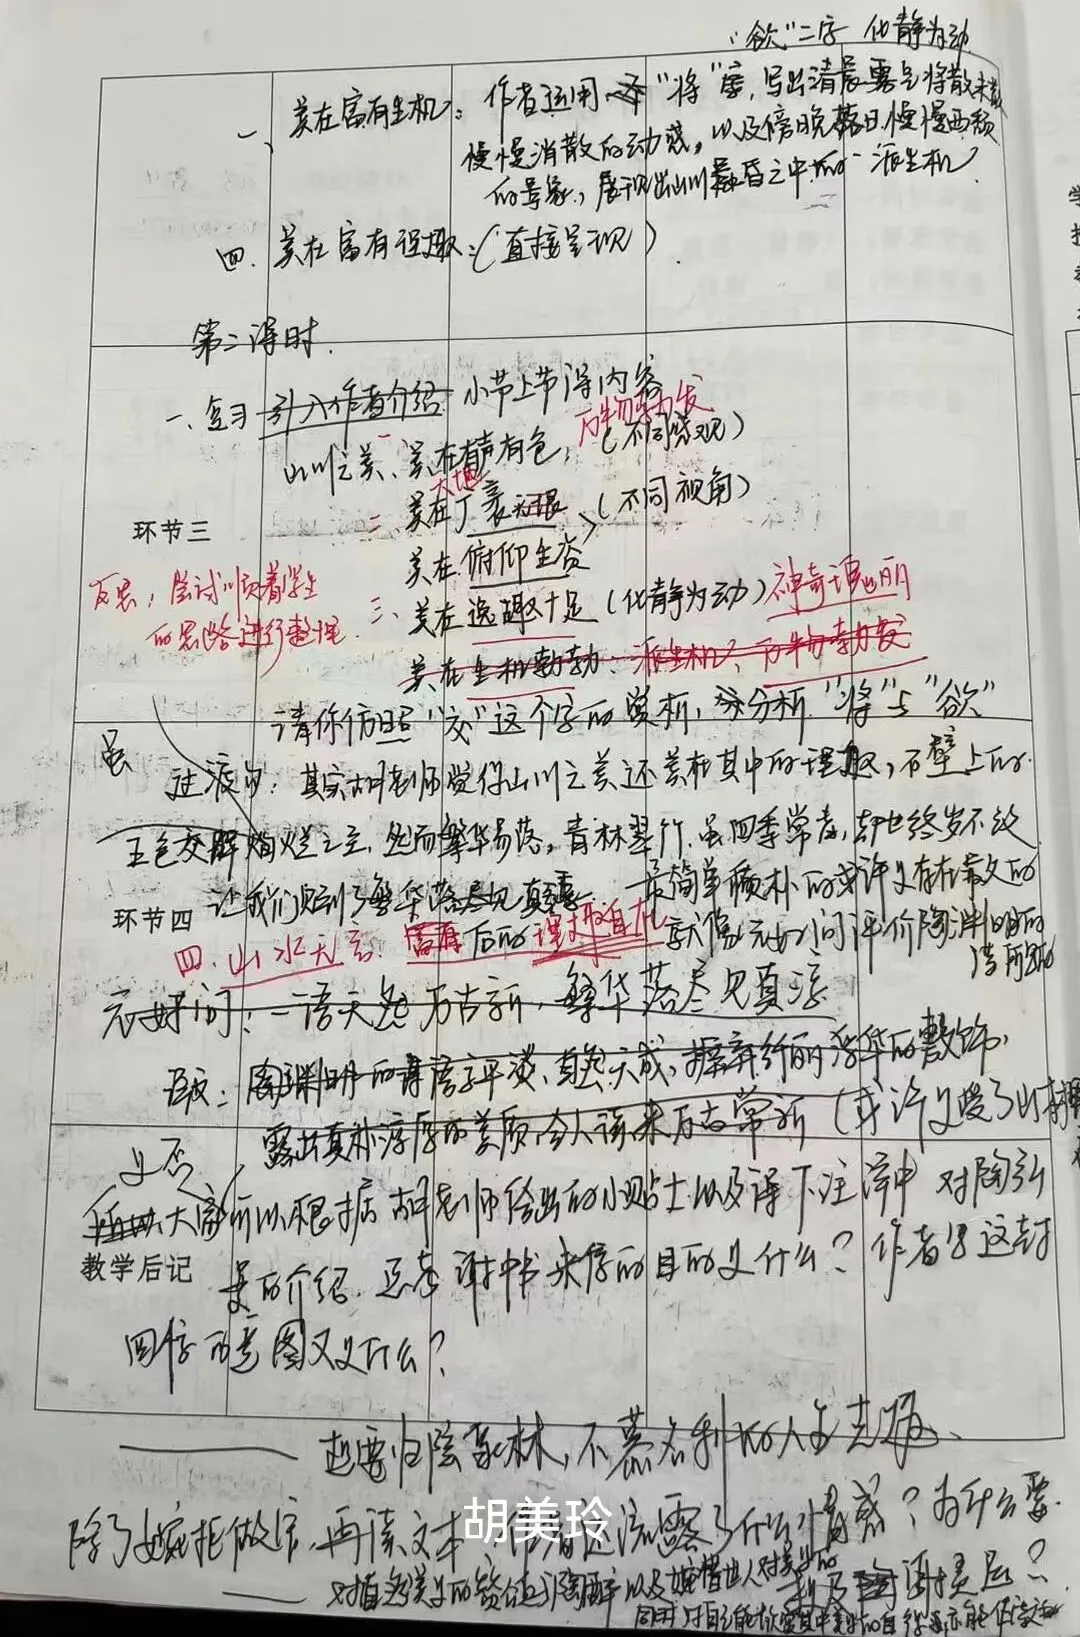 "欲"二字 化静为动
一、美在富有生机：作者运用"将"字，写出清晨雾气将散未散
慢慢消散的动感，以及傍晚落日慢慢西颓
的景象，展现出山川晨昏之中的一派生机
四、美在富有理趣：（直接呈现）
第二课时
一、复习 引入作者介绍 小节上节课内容
万物勃发
山川之美、一 美在有声有色，（不同感观）
大地
二 美在（不同视角）
美在俯仰生姿
环节三
反思：尝试顺着学生
的思路进行整理
三、美在逸趣十足（化静为动）神奇瑰丽
美在生机勃勃：一派生机、万物勃发
请你仿照"交"这个字的赏析，分析"将"与"欲"
虽
过渡句：其实胡老师觉得山川之美还美在其中的理趣，石壁上的
五色交辉灿烂之至，然而繁华易落，青林翠竹，虽四季常青，却也终岁不改
让我们见到了繁华落尽见真淳 最简单质朴的或许又存在散文的
环节四
四、山水无言 富有后的理趣自在 就像元好问评价陶渊明的
诗所说的
元好问：一语天然万古新，繁华落尽见真淳
陶渊明的语言平淡、自然天成，摒弃纤丽浮华的敷饰，
露出真朴淳厚的美质，令人读来万古常新（或许
又否
大家所以根据胡老师给出的小贴士以及课下注释中对陶弘
教学后记
景的介绍，思考谢中书来信的目的是什么？作者写这封
回信的意图又是什么？
想要归隐山林，不慕名利的人生志趣
除了婉拒做官，再读文本，作者还流露了什么情感？为什么要
胡美玲